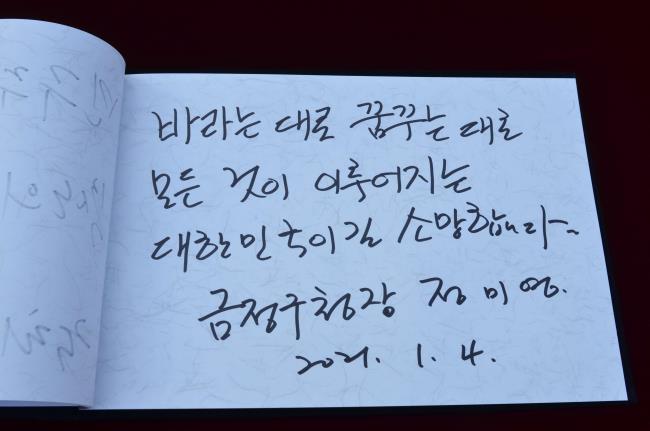 바라는 대로 꿈꾸는 대로
모든 것이 이룩어지는
대한민국이길 소망합니다~
금정구청장 정미영.
2021. 1. 4.